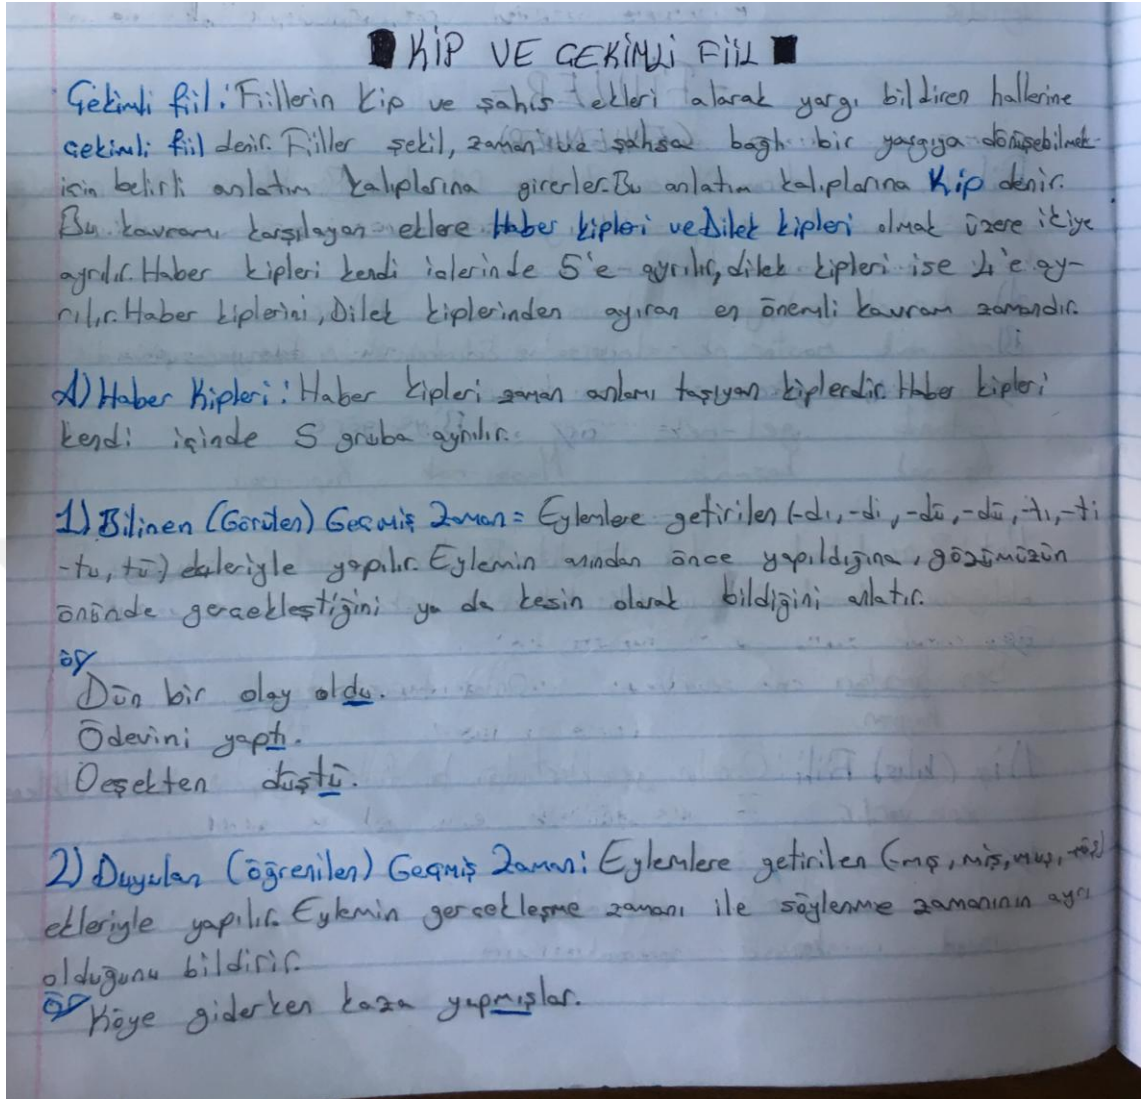 KİP VE ÇEKİMLİ FİİL
Çekimli fiil: Fiillerin kip ve şahıs ekleri alarak yargı bildiren hallerine
çekimli fiil denir. Fiiller şekil, zaman ve şahsa bağlı bir yargıya dönüşebilmek
için belirli anlatım kalıplarına girerler. Bu anlatım kalıplarına Kip denir.
Bu kavramı karşılayan eklere Haber kipleri ve Dilek kipleri olmak üzere ikiye
ayrılır. Haber kipleri kendi içlerinde 5'e ayrılır, dilek kipleri ise 4'e ay-
rılır. Haber kiplerini, Dilek kiplerinden ayıran en önemli kavram zamandır.
A) Haber Kipleri: Haber kipleri zaman anlamı taşıyan kiplerdir. Haber kipleri
kendi içinde 5 gruba ayrılır.
1) Bilinen (Görülen) Geçmiş Zaman = Eylemlere getirilen (-dı, -di, -du, -dü, -tı, -ti
-tu, tü) ekleriyle yapılır. Eylemin anından önce yapıldığına, gözümüzün
önünde gerçekleştiğini ya da kesin olarak bildiğini anlatır.
ör/
Dün bir olay oldu.
Ödevini yaptı.
Oeşekten düştü.
2) Duyulan (öğrenilen) Geçmiş Zaman: Eylemlere getirilen (-mış, miş, muş,
ekleriyle yapılır. Eylemin gerçekleşme zamanı ile söylenme zamanının ayrı
olduğunu bildirir.
ör/ Köye giderken kaza yapmışlar.